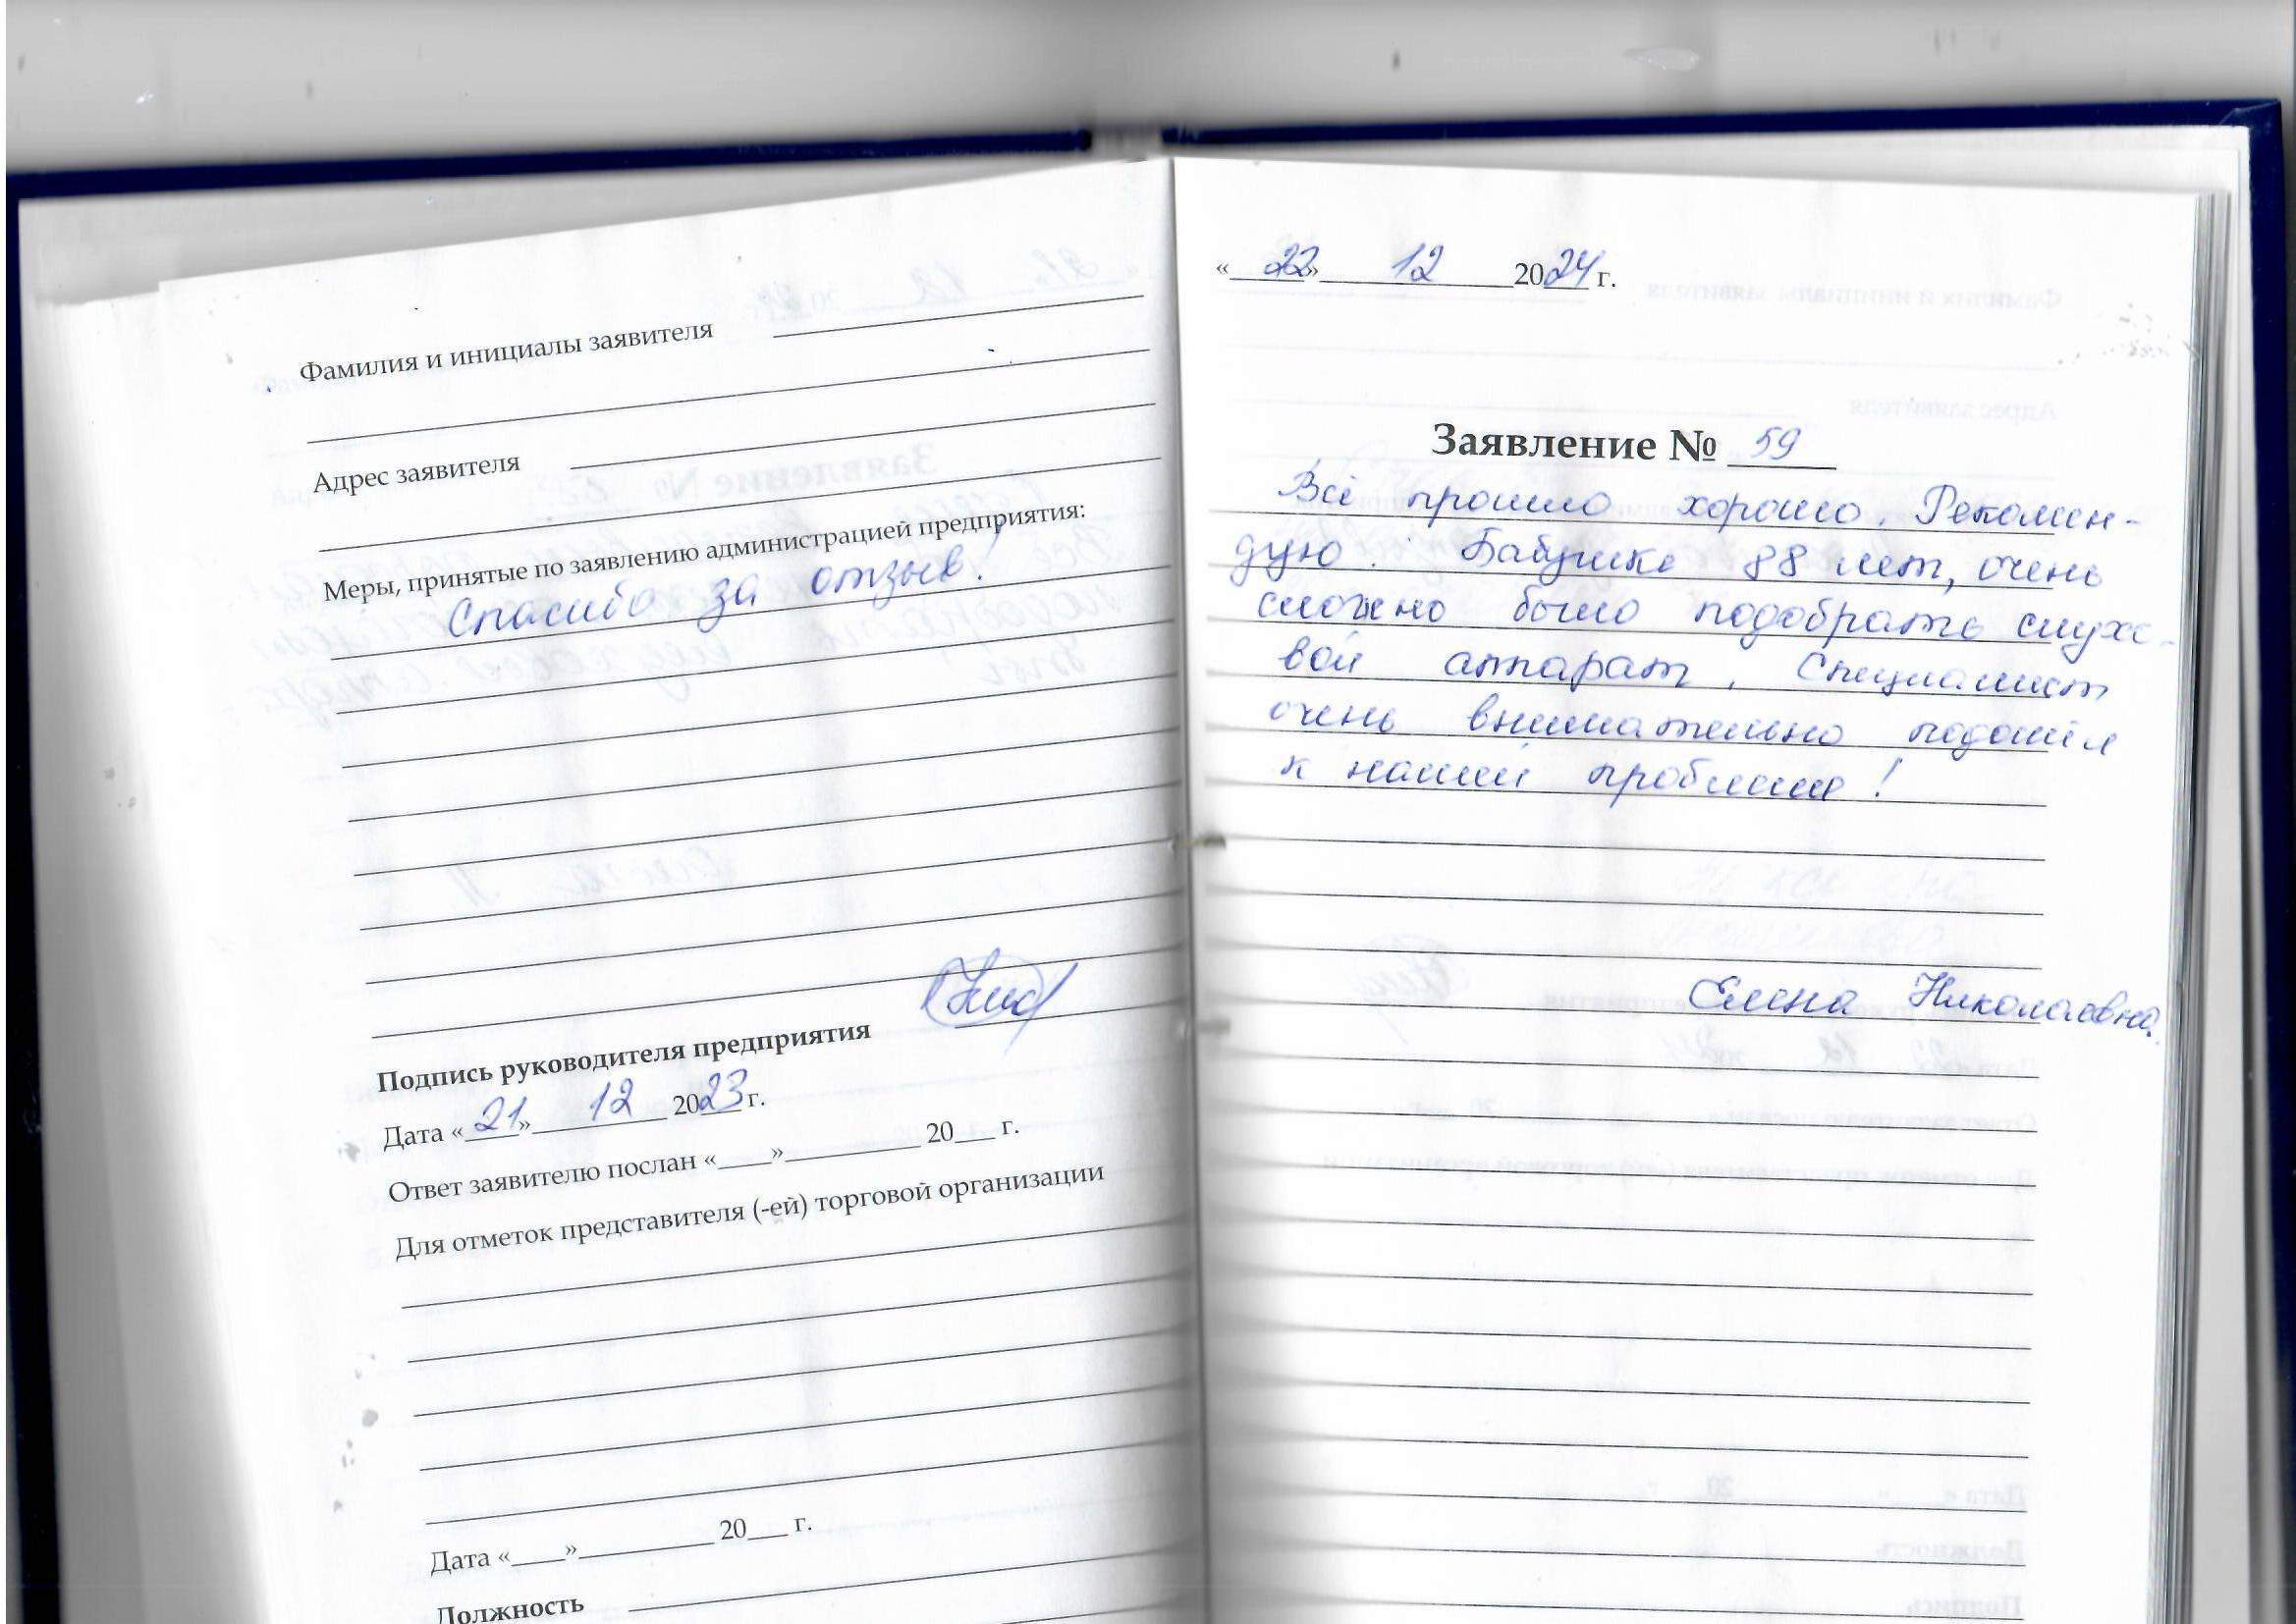 Фамилия и инициалы заявителя
Адрес заявителя
Меры, принятые по заявлению администрацией предприятия:
Спасибо за отзыв!
Подпись руководителя предприятия
Дата «21» 12 2023 г.
Ответ заявителю послан «____»__________ 20___ г.
Для отметок представителя (-ей) торговой организации
Дата «____»__________ 20___ г.
Должность
«22» 12 2024 г.
Заявление № 59
Всё прошло хорошо. Рекомен-
дую! Бабушке 88 лет, очень
сложно было подобрать слухо-
вой аппарат. Специалист
очень внимательно подошёл
к нашей проблеме!
Елена Николаевна